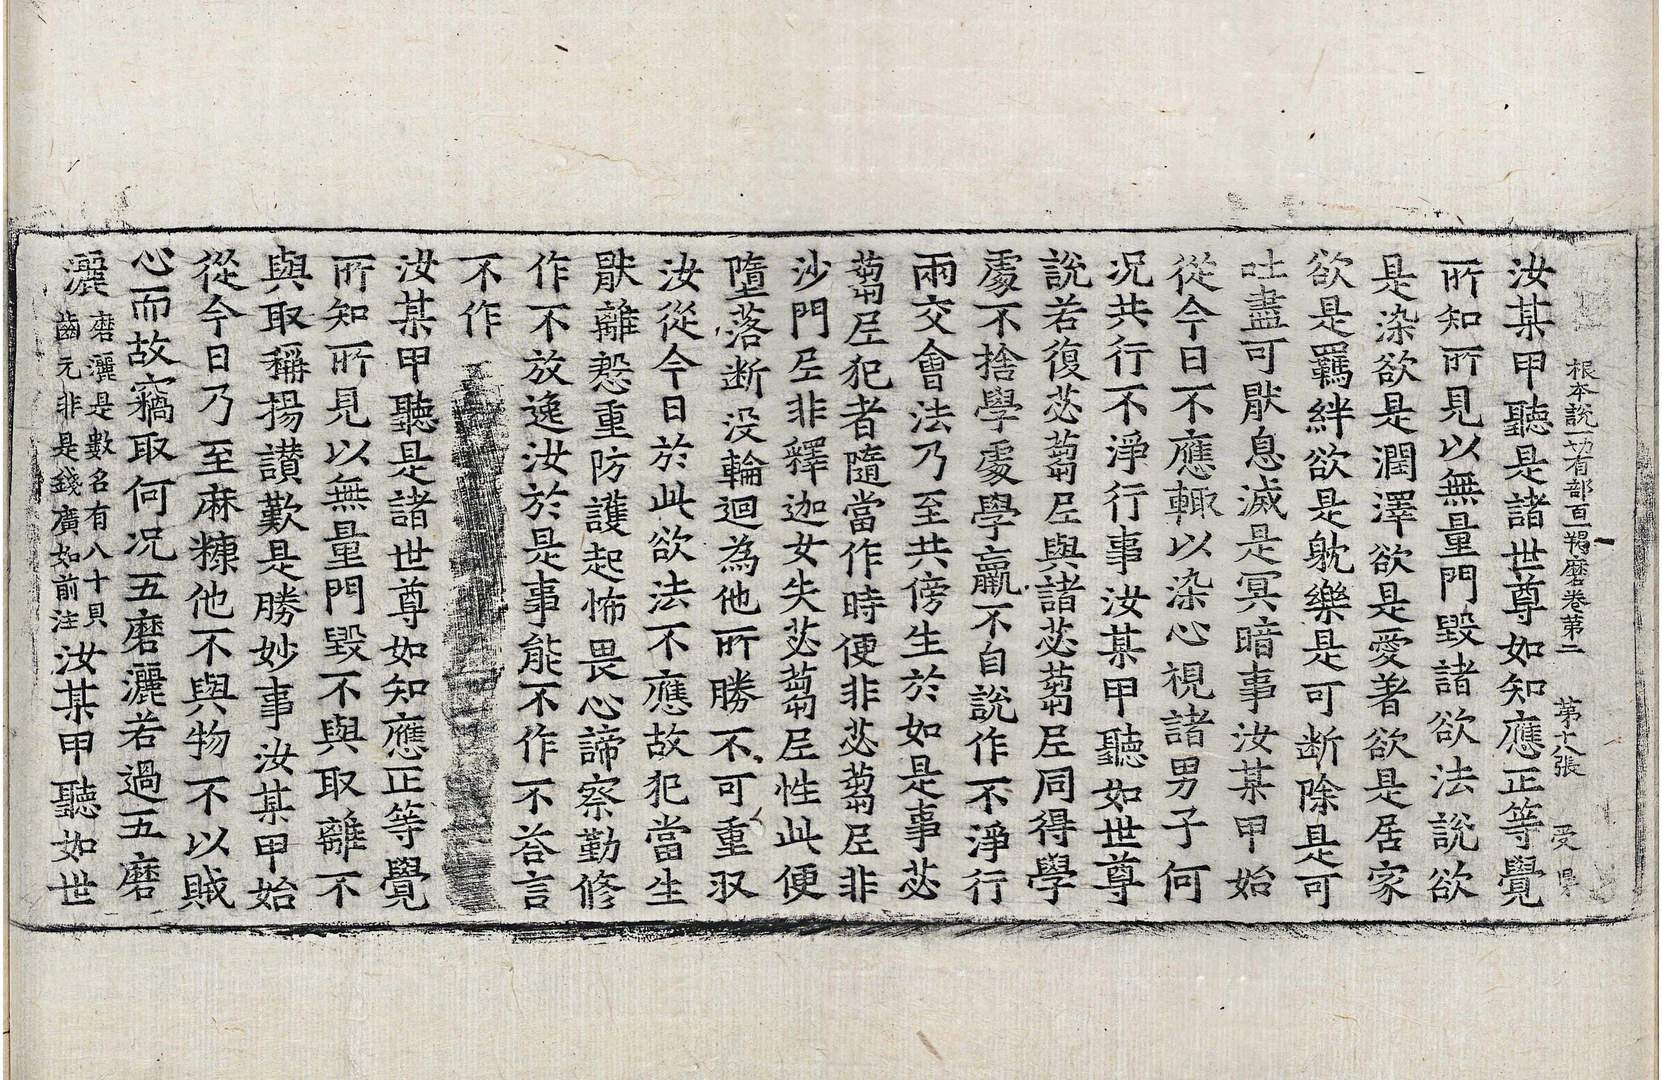 根本說一切有部百一羯磨卷第二 第十八張 受
汝某甲聽是諸世尊如知應正等覺
所知所見以無量門毀諸欲法說欲
是染欲是潤澤欲是愛著欲是居家
欲是羈絆欲是躭樂是可断除是可
吐盡可猒息滅是冥暗事汝某甲始
從今日不應輙以染心視諸男子何
况共行不淨行事汝某甲聽如世尊
說若復苾蒭尼與諸苾蒭尼同得學
處不捨學處學羸不自說作不淨行
兩交會法乃至共傍生於如是事苾
蒭尼犯者隨當作時便非苾蒭尼非
沙門尼非釋迦女失苾蒭尼性此便
墮落断没輪迴為他所勝不可重収
汝從今日於此欲法不應故犯當生
猒離慇重防護起怖畏心諦察勤修
作不放逸汝於是事能不作不荅言
不作
汝某甲聽是諸世尊如知應正等覺
所知所見以無量門毀不與取離不
與取稱揚讃歎是勝妙事汝某甲始
從今日乃至麻糠他不與物不以賊
心而故竊取何况五磨灑若過五磨
灑磨灑是數名有八十貝齒元非是錢廣如前注汝某甲聽如世